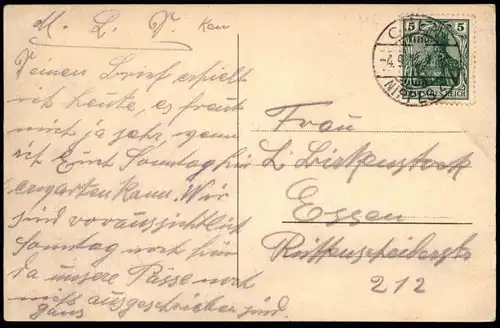 M. L. V.
Deinen Brief erhielt
ich heute, es freut
mich ja sehr, wenn
ich Sonntag hin
kann. Wir
sind voraussichtlich
Sonntag noch hier
da unsere Pässe noch
nicht ausgeschrieben sind.
ganz
5 5
CÖLN
NIPPES
Frau
L. Birkenstock
Essen
Rüttenscheiderstr
212